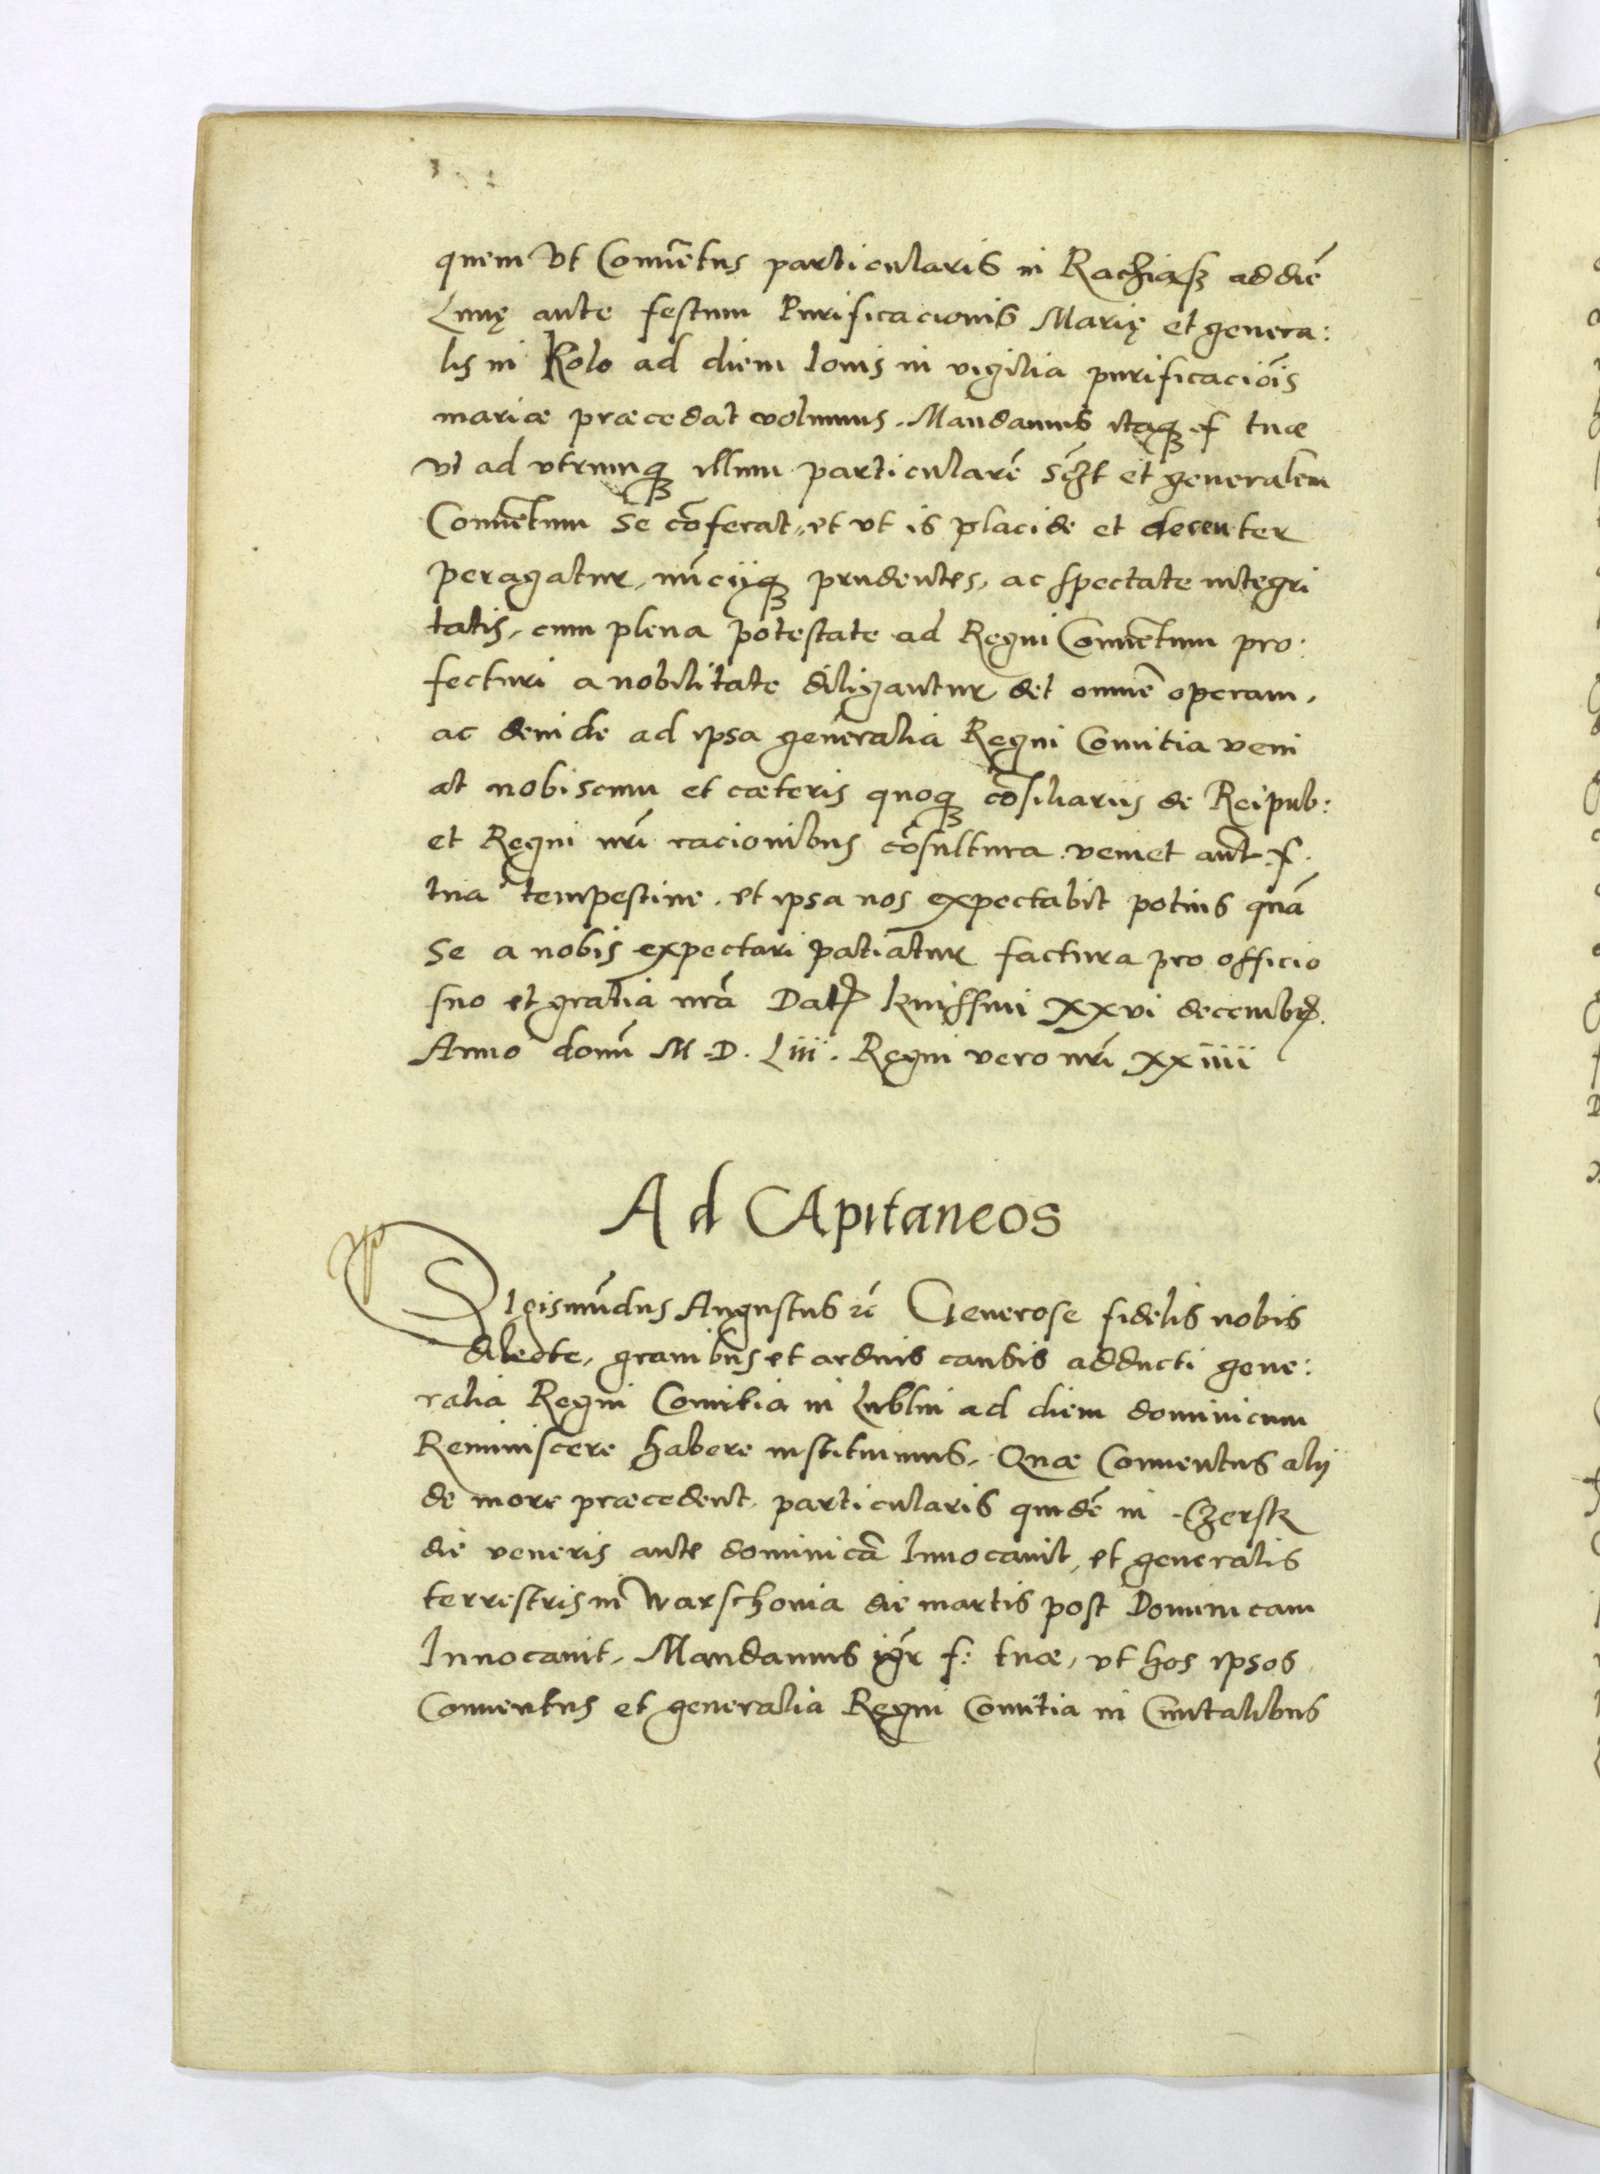 quem Vt Conuẽtus particularis in Rachiąsz ad diẽ
Lunę ante festum Purificacionis Marię et genera:
lis in Kolo ad diem Iouis in vigilia purificaciõis
mariæ præcedat volumus. Mandamus itaqꝫ f tuæ
vt ad vtrumqꝫ illum particularẽ sczt et generalem
Conuẽtum se cõferat, et vt is placide et decenter
peragatur, nũcijqꝫ prudentes, ac spectate integri
tatis, cum plena potestate ad Regni Conuẽtum pro:
fecturi a nobilitate diligantur det omnẽ operam,
ac deinde ad ipsa generalia Regni Comitia veni
at nobiscum et cæteris quoqꝫ cõsiliariis de Reipub:
et Regni nr̃i racionibus cõsultura. veniet aut̃ f.
tua tempestiue. et ipsa nos expectabit potius quã
se a nobis expectari patiatur factura pro officio
suo et gratia nr̃a Datꝭ knissini xxvi decembrꝭ.
Anno domĩ M.D. Liii. Regni vero nr̃i xxiiii
Ad CApitaneos
SIgismũdus Augustus zc̃ Generose fidelis nobis
dilecte, grauibus et arduis causis adducti gene:
ralia Regni Comitia in Lublin ad diem dominicum
Reminiscere habere instituimus, Quæ Conuentus alij
de more præcedent, particularis quidẽ in Czersk
die veneris ante dominicã Inuocauit, et generalis
terrestris in Warschouia die martis post Dominicam
Inuocauit, Mandamus igr̃ f: tuæ, vt hos ipsos
Conuentus et generalia Regni Comitia in Ciuitatibus